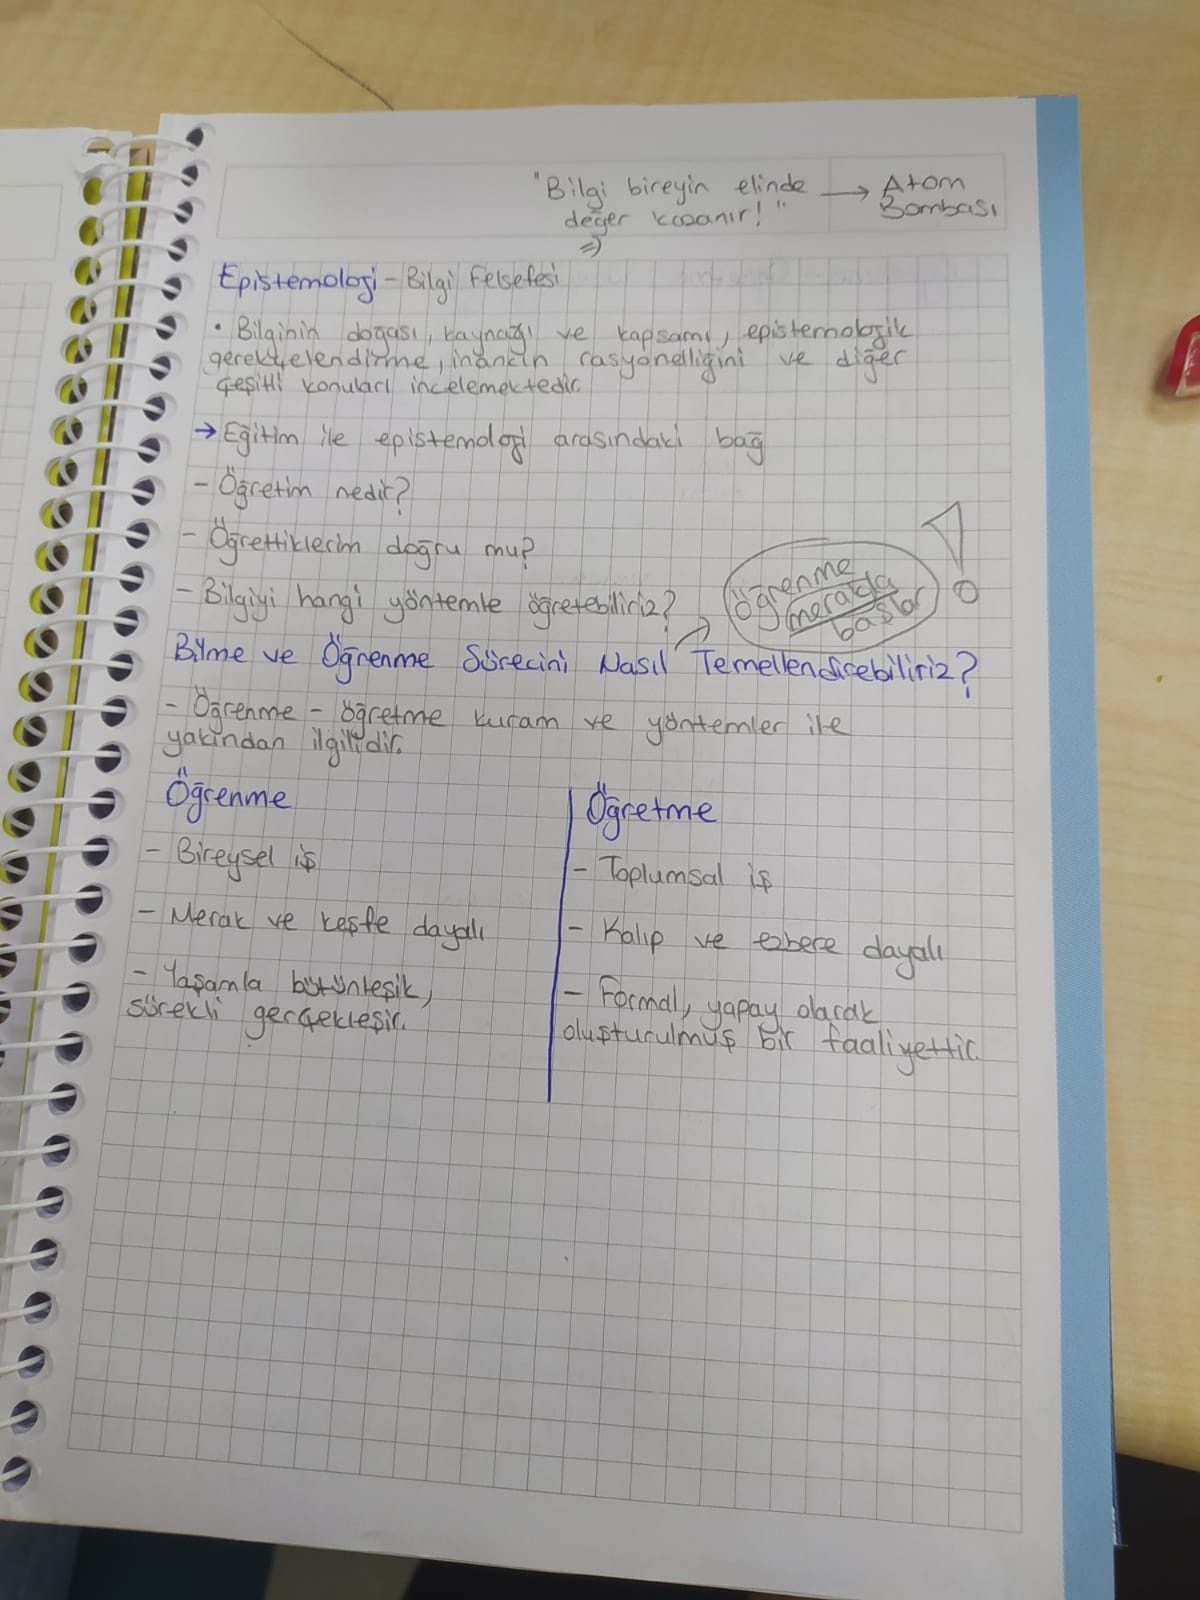 "Bilgi bireyin elinde → Atom
değer kazanır!" Bombası
=)
Epistemoloji - Bilgi Felsefesi
• Bilginin doğası, kaynağı ve kapsamı, epistemolojik
gerekçelendirme, inancın rasyonelliğini ve diğer
çeşitli konuları incelemektedir.
→ Eğitim ile epistemoloji arasındaki bağ
- Öğretim nedir?
- Öğrettiklerim doğru mu?
- Bilgiyi hangi yöntemle öğretebiliriz?
Öğrenme
merakla
başlar
!
Bilme ve Öğrenme Sürecini Nasıl Temellendirebiliriz?
- Öğrenme - öğretme kuram ve yöntemler ile
yakından ilgilidir.
Öğrenme
- Bireysel iş
- Merak ve keşfe dayalı
- Yaşamla bütünleşik,
sürekli gerçekleşir.
Öğretme
- Toplumsal iş
- Kalıp ve ezbere dayalı
- Formal, yapay olarak
oluşturulmuş bir faaliyettir.